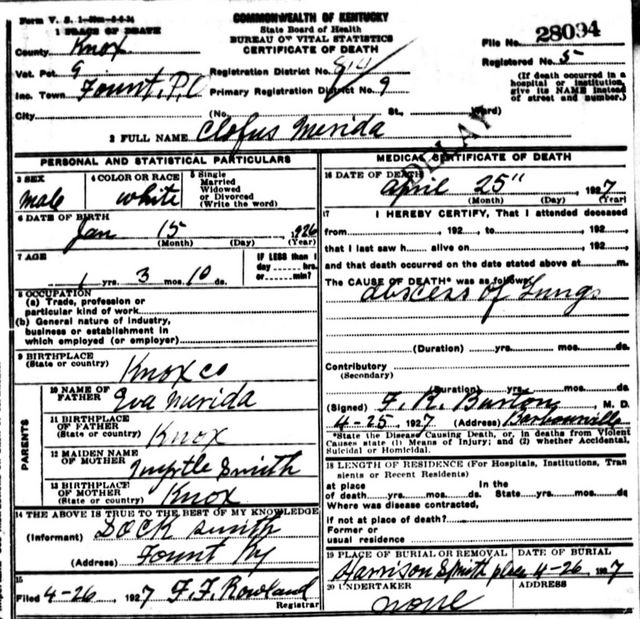 Form V. S. 1
COMMONWEALTH OF KENTUCKY
State Board of Health
BUREAU OF VITAL STATISTICS
CERTIFICATE OF DEATH
1 PLACE OF DEATH
County Knox
File No. 28094
Registered No. 5
Vot. Pct. 9
Registration District No.
(If death occurred in a hospital or institution, give its NAME instead of street and number.)
Inc. Town Fount, P.O
Primary Registration District No. 9
City (No. St., Ward)
2 FULL NAME Clofus Merida
DELAY
PERSONAL AND STATISTICAL PARTICULARS
3 SEX male
4 COLOR OR RACE white
5 Single
Married
Widowed
or Divorced
(Write the word)
6 DATE OF BIRTH
Jan 15 1926
(Month) (Day) (Year)
7 AGE
1 yrs. 3 mos. 10 ds.
IF LESS than 1
day hrs.
or min?
8 OCCUPATION
(a) Trade, profession or
particular kind of work
(b) General nature of industry,
business or establishment in
which employed (or employer)
9 BIRTHPLACE
(State or country) Knox co
PARENTS
10 NAME OF
FATHER Eva Merida
11 BIRTHPLACE
OF FATHER
(State or country) Knox
12 MAIDEN NAME
OF MOTHER Myrtle Smith
13 BIRTHPLACE
OF MOTHER
(State or country) Knox
14 THE ABOVE IS TRUE TO THE BEST OF MY KNOWLEDGE
(Informant) Dock Smith
(Address) Fount Ky
15
Filed 4-26, 1927 F. F. Rowland
Registrar
MEDICAL CERTIFICATE OF DEATH
16 DATE OF DEATH
April 25" 1927
(Month) (Day) (Year)
17 I HEREBY CERTIFY, That I attended deceased
from , 192 to , 192
that I last saw h alive on , 192
and that death occurred on the date stated above at m.
The CAUSE OF DEATH* was as follows:
abscess of Lungs
(Duration) yrs. mos. ds.
Contributory
(Secondary)
(Duration) yrs. mos. ds.
(Signed) F. R. Burton M. D.
4-25, 1927 (Address) Barbourville
*State the Disease Causing Death, or, in deaths from Violent
Causes state (1) Means of Injury; and (2) whether Accidental,
Suicidal or Homicidal.
18 LENGTH OF RESIDENCE (For Hospitals, Institutions, Tran
sients or Recent Residents)
at place In the
of death yrs. mos. ds. State yrs. mos. ds.
Where was disease contracted,
if not at place of death?
Former or
usual residence
19 PLACE OF BURIAL OR REMOVAL DATE OF BURIAL
Harrison Smith place 4-26, 1927
20 UNDERTAKER ADDRESS
none